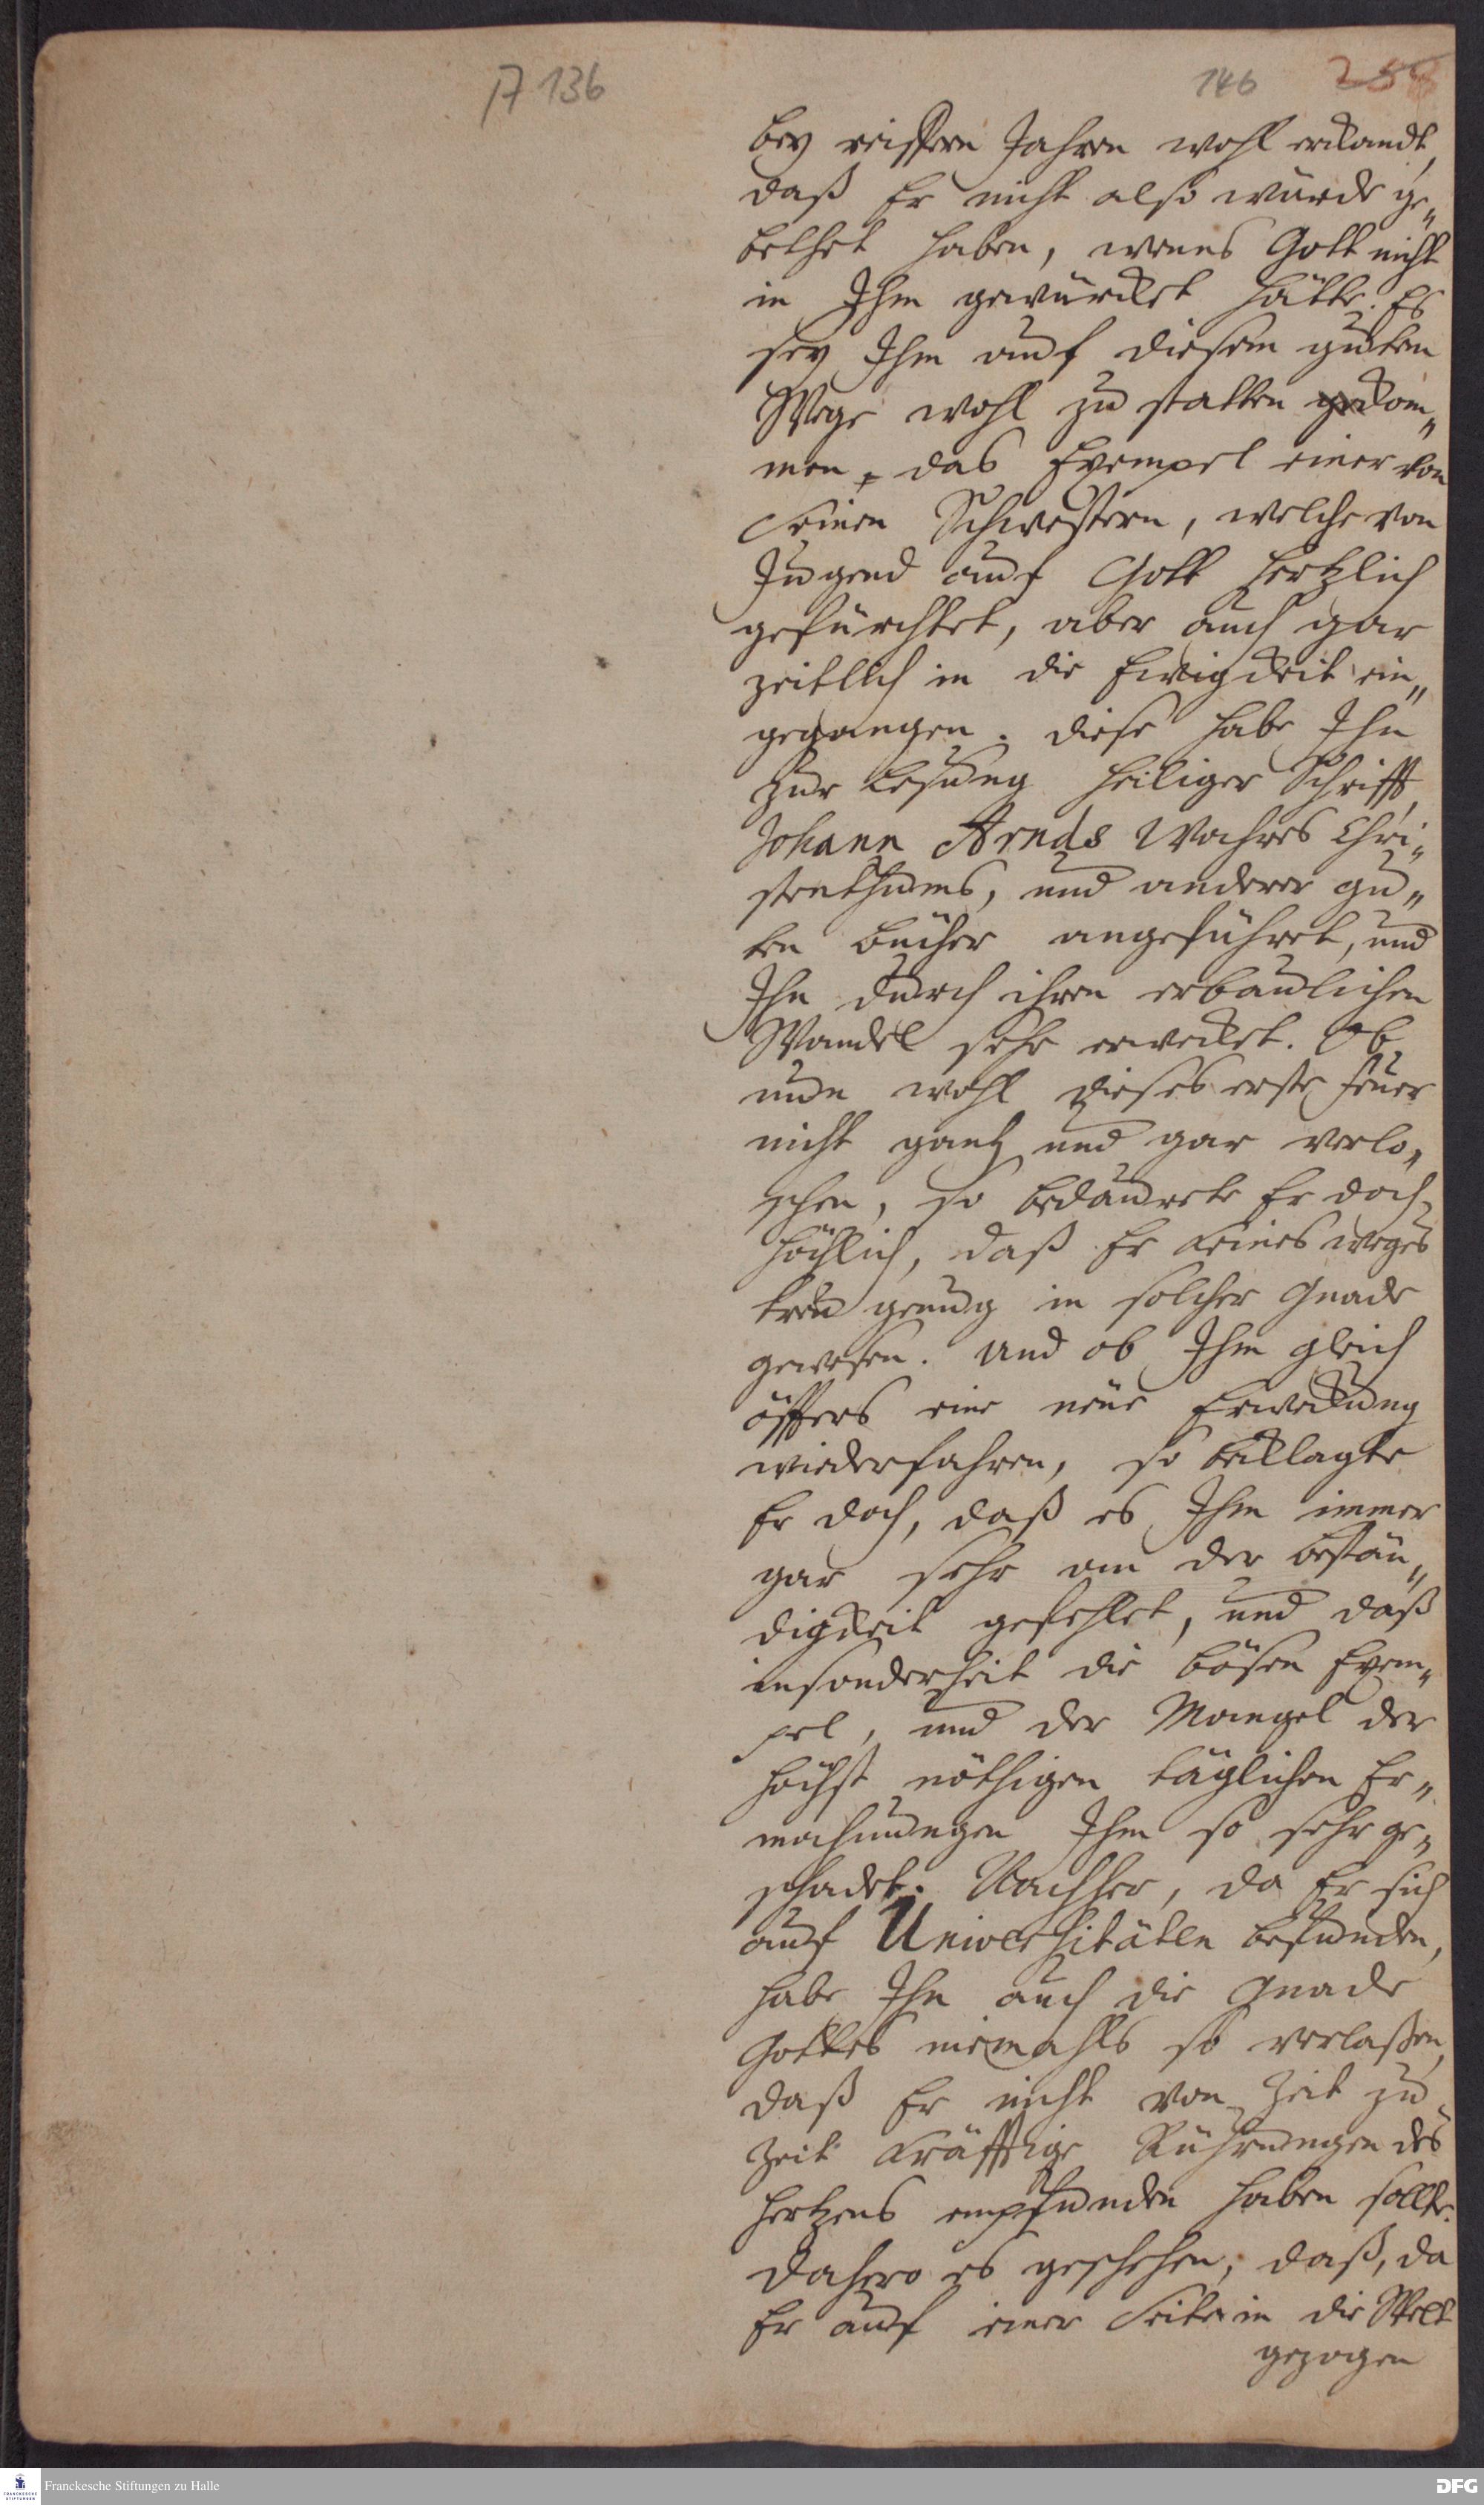 A 136
146 258
bey reiffern Jahren wohl erkandt,
daß Er nicht also würde ge„
bethet haben, wenns Gott nicht
in Ihm gewürcket hätte. Es
sey Ihm auf diesem guten
Wege wohl zu statten gekom„
men, das Exempel einer von
Seinen Schwestern, welche von
Jugend auf Gott hertzlich
gefürchtet, aber auch gar
zeitlich in die Ewigkeit ein„
gegangen. Diese habe Ihn
zur Lesung heiliger Schrifft,
Johann Arnds Wahres Chri„
stenthums, und anderer gu„
ten Bücher angeführet, und
Ihn durch ihren erbaulichen
Wandel sehr erwecket. Ob
nun wohl dieses erste Feuer
nicht gantz und gar verlo„
schen, so bedaurete Er doch
höchlich, daß Er keines weges
treu genug in solcher Gnade
gewesen. Und ob Ihm gleich
öffters eine neue Erweckung
wiederfahren, so beklagte
Er doch, daß es Ihm immer
gar sehr an der Bestän„
digkeit gefehlet, und daß
insonderheit die bösen Exem„
pel, und der Mangel der
höchst nöthigen täglichen Er„
mahnungen Ihm so sehr ge„
schadet. Nachher, da Er sich
auf Universitäten befunden,
habe Ihn auch die Gnade
Gottes niemahls so verlaßen,
daß Er nicht von Zeit zu
Zeit kräfftige Rührungen des
Hertzens empfunden haben sollte.
Dahero es geschehen, daß, da
Er auf einer Seite in die Welt
gezogen
Franckesche Stiftungen zu Halle
DFG